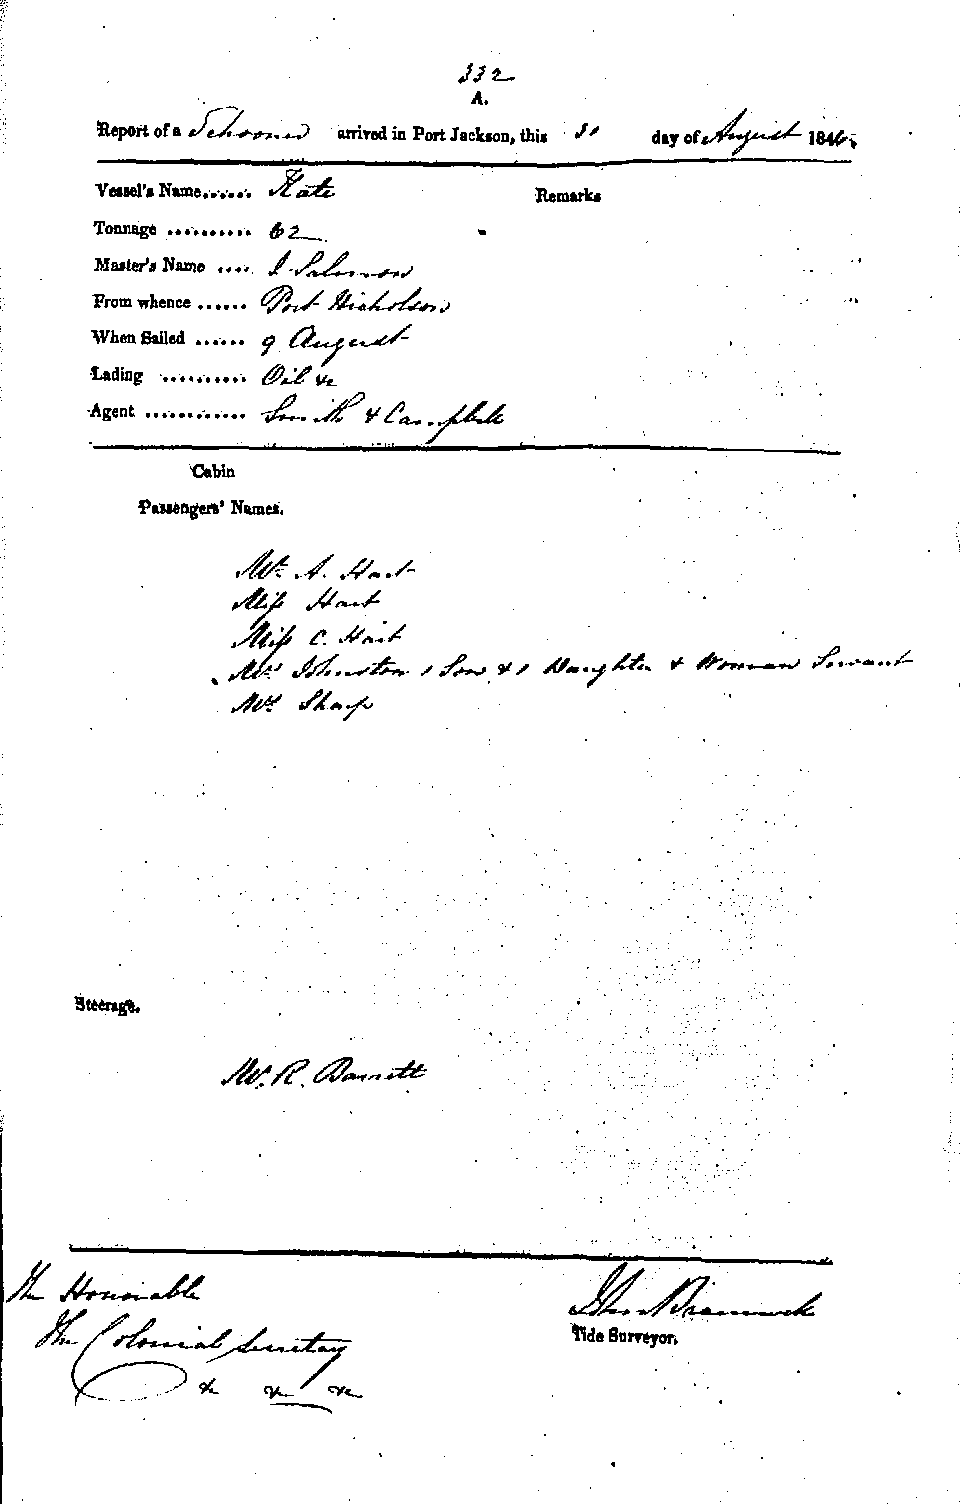 332
A.
Report of a Schooner arrived in Port Jackson, this 31 day of August 184
Vessel's Name...... Kate Remarks
Tonnage .......... 62
Master's Name .... J Salmon
From whence ...... Port Nicholson
When Sailed ...... 9 August
Lading .......... Oil &c
Agent ............ Smith & Campbell
Cabin
Passengers' Names.
Mr. A. Hart
Miss Hart
Miss C. Hart
Mrs Johnston 1 Son & 1 Daughter & Woman Servant
Mr Sharp
Steerage.
Mr. R. Barrett
The Honorable
The Colonial Secretary
&c &c &c
Tide Surveyor.